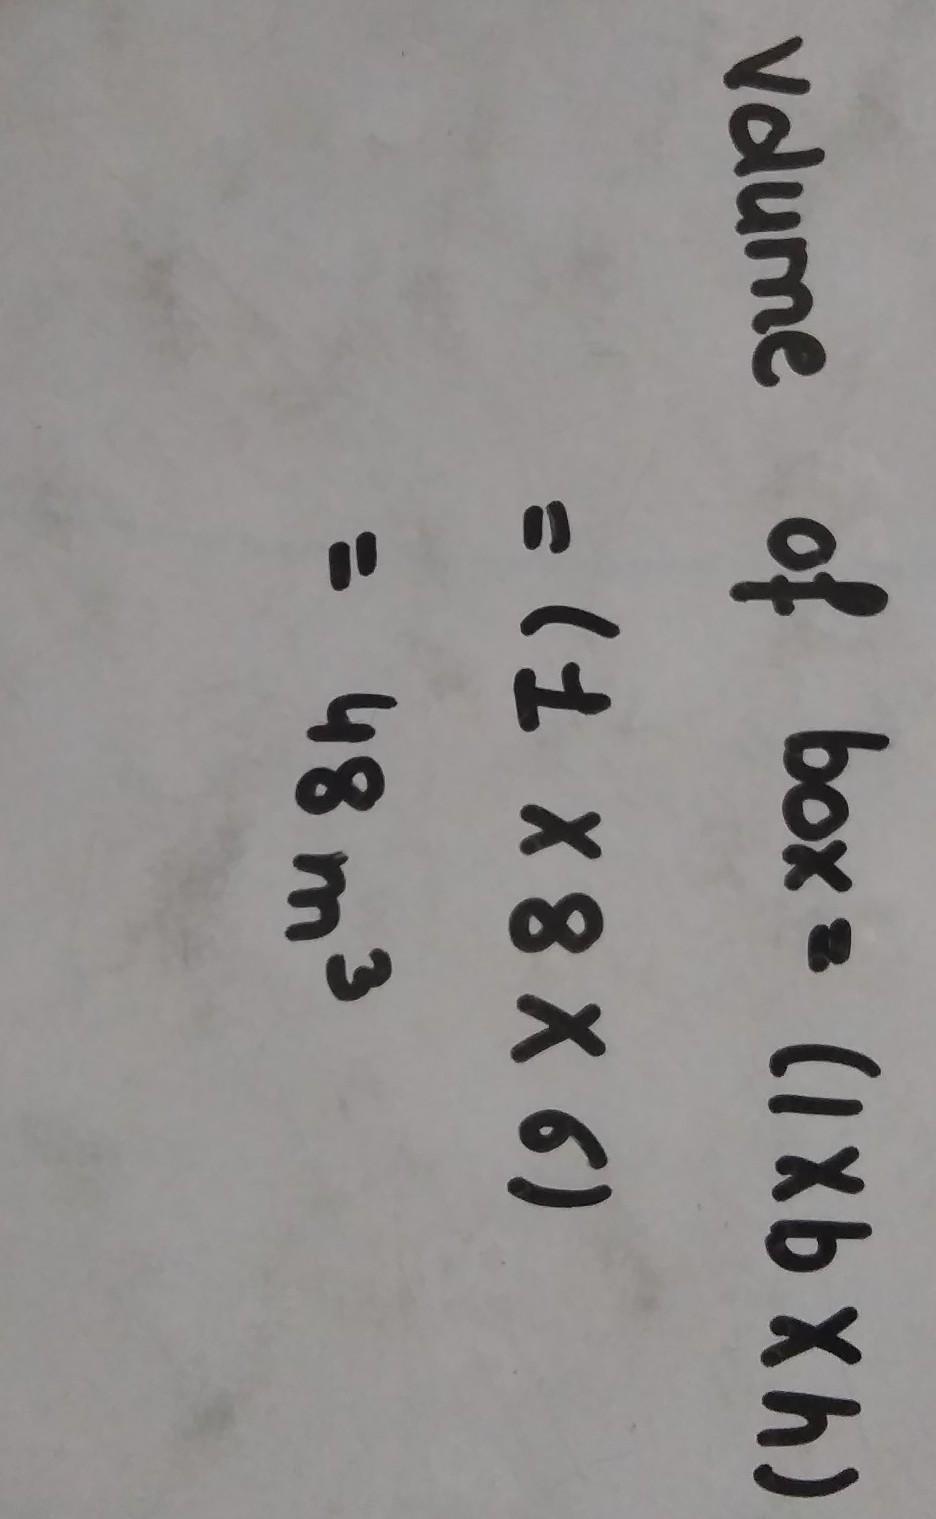 Volume of box = (l x b x h)
= (1 x 8 x 6)
= 48 m³